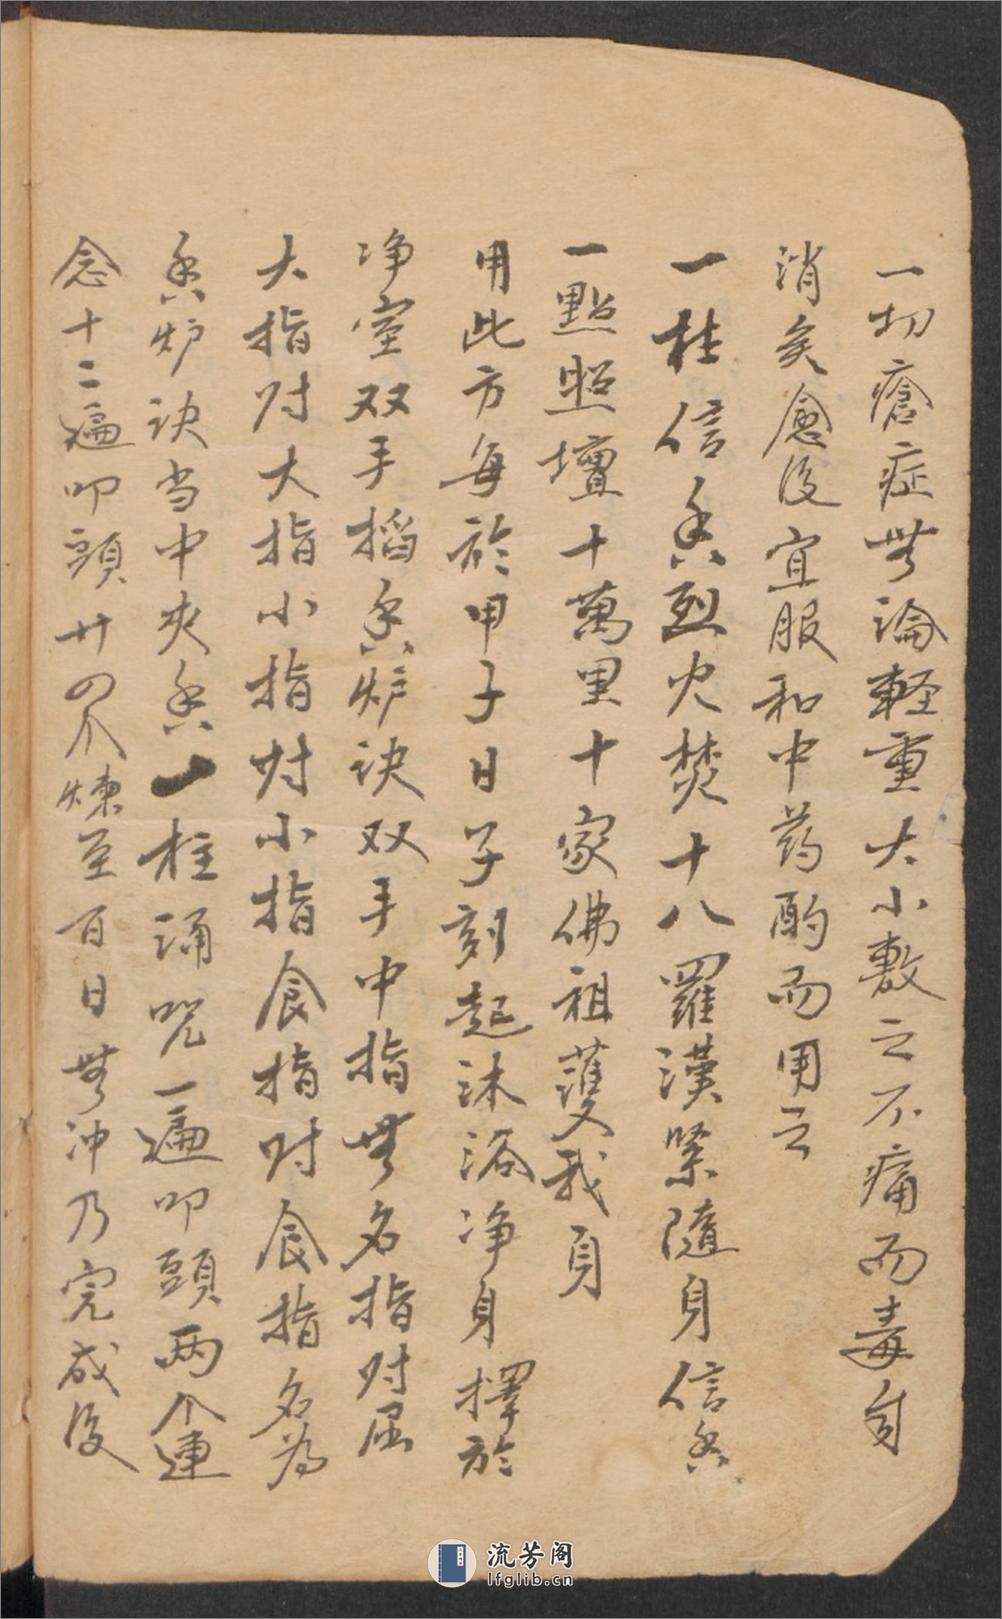 一切瘡症無論輕重大小敷之不痛而毒自
消矣愈後宜服和中药酌而用之
一柱信香烈火焚十八羅漢緊隨身信香
一點照壇十萬里十家佛祖護我身
用此方每於甲子日子刻起沐浴净身擇於
净室双手搯香炉诀双手中指無名指对屈
大指对大指小指对小指食指对食指名為
香炉诀当中夾香一柱诵咒一遍叩頭两个連
念十二遍叩頭廿四个煉至百日無冲乃完成後
流芳阁
lfglib.cn